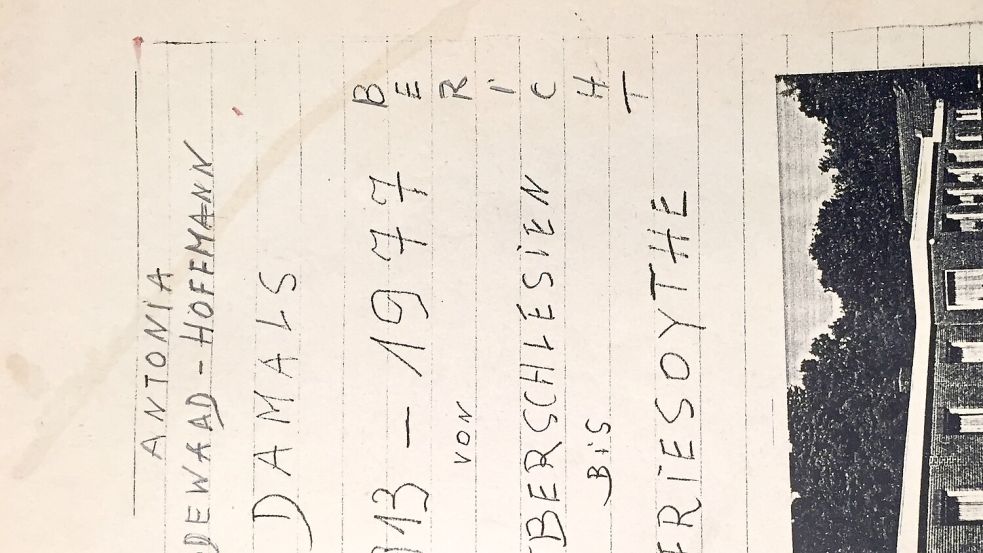 ANTONIA
DEWAAD - HOFFMANN
DAMALS
13 - 1977
VON
BERSCHLESIEN
BIS
FRIESOYTHE
BERICHT